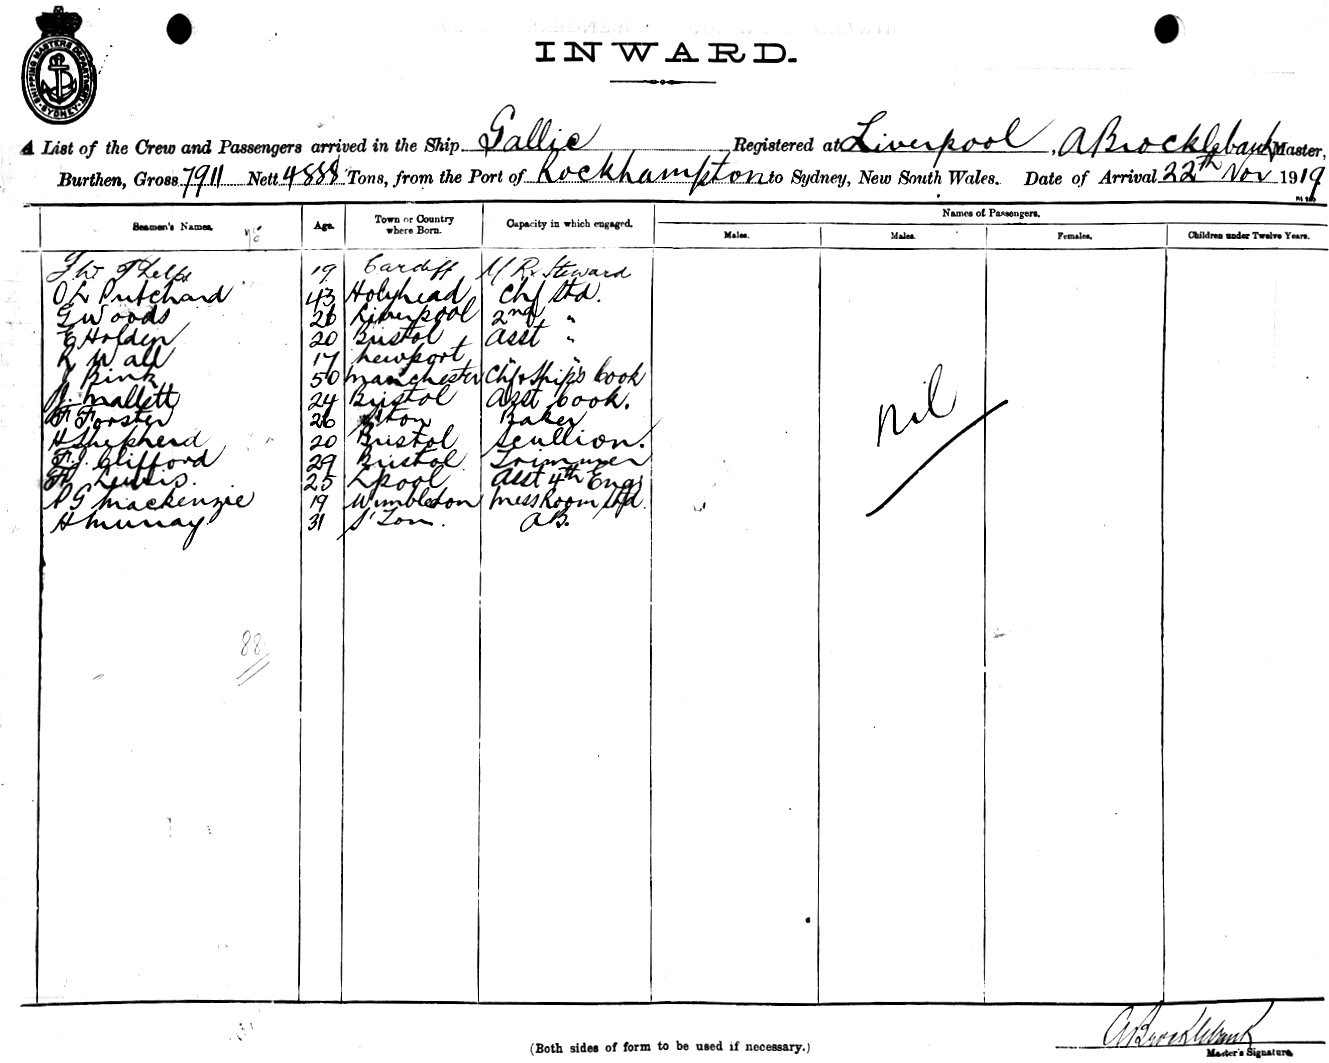 SHIPPING MASTERS DEPARTMENT SYDNEY
INWARD.
A List of the Crew and Passengers arrived in the Ship Gallic Registered at Liverpool, A Brocklebank Master,
Burthen, Gross 7911 Nett 4888 Tons, from the Port of Rockhampton to Sydney, New South Wales. Date of Arrival 22th Nov 1919
Seamen's Names. Age. Town or Country where Born. Capacity in which engaged. Names of Passengers.
Males. Males. Females. Children under Twelve Years.
78
19 Cardiff M R Steward
O L Pritchard 43 Holyhead Chf Std.
G Woods 26 Liverpool 2nd "
E Holden 20 Bristol Asst "
R Wall 17 Newport
J Bink 50 Manchester Chf & Ship's Cook
J. Mallett 24 Bristol Asst Cook.
F Forster 26 Baker
H Shepherd 20 Bristol Scullion.
F.J. Clifford 29 Bristol Trimmer
H Lewis. 25 Lpool Asst 4th Engr
P G Mackenzie 19 Wimbledon Mess Room Std.
H Murray. 31 S'Ton. AB.
nil
88
A Brocklebank
Master's Signature.
(Both sides of form to be used if necessary.)